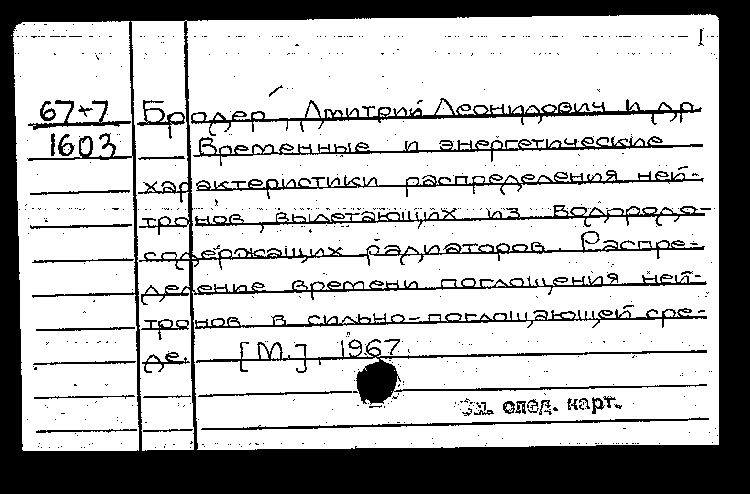 1
67-7 Бродер, Дмитрий Леонидович и др.
1603 Временные и энергетические
характеристики распределения ней-
тронов, вылетающих из водородо-
содержащих радиаторов. Распре-
деление времени поглощения ней-
тронов в сильно-поглощающей сре-
де. [М.], 1967.
См. след. карт.